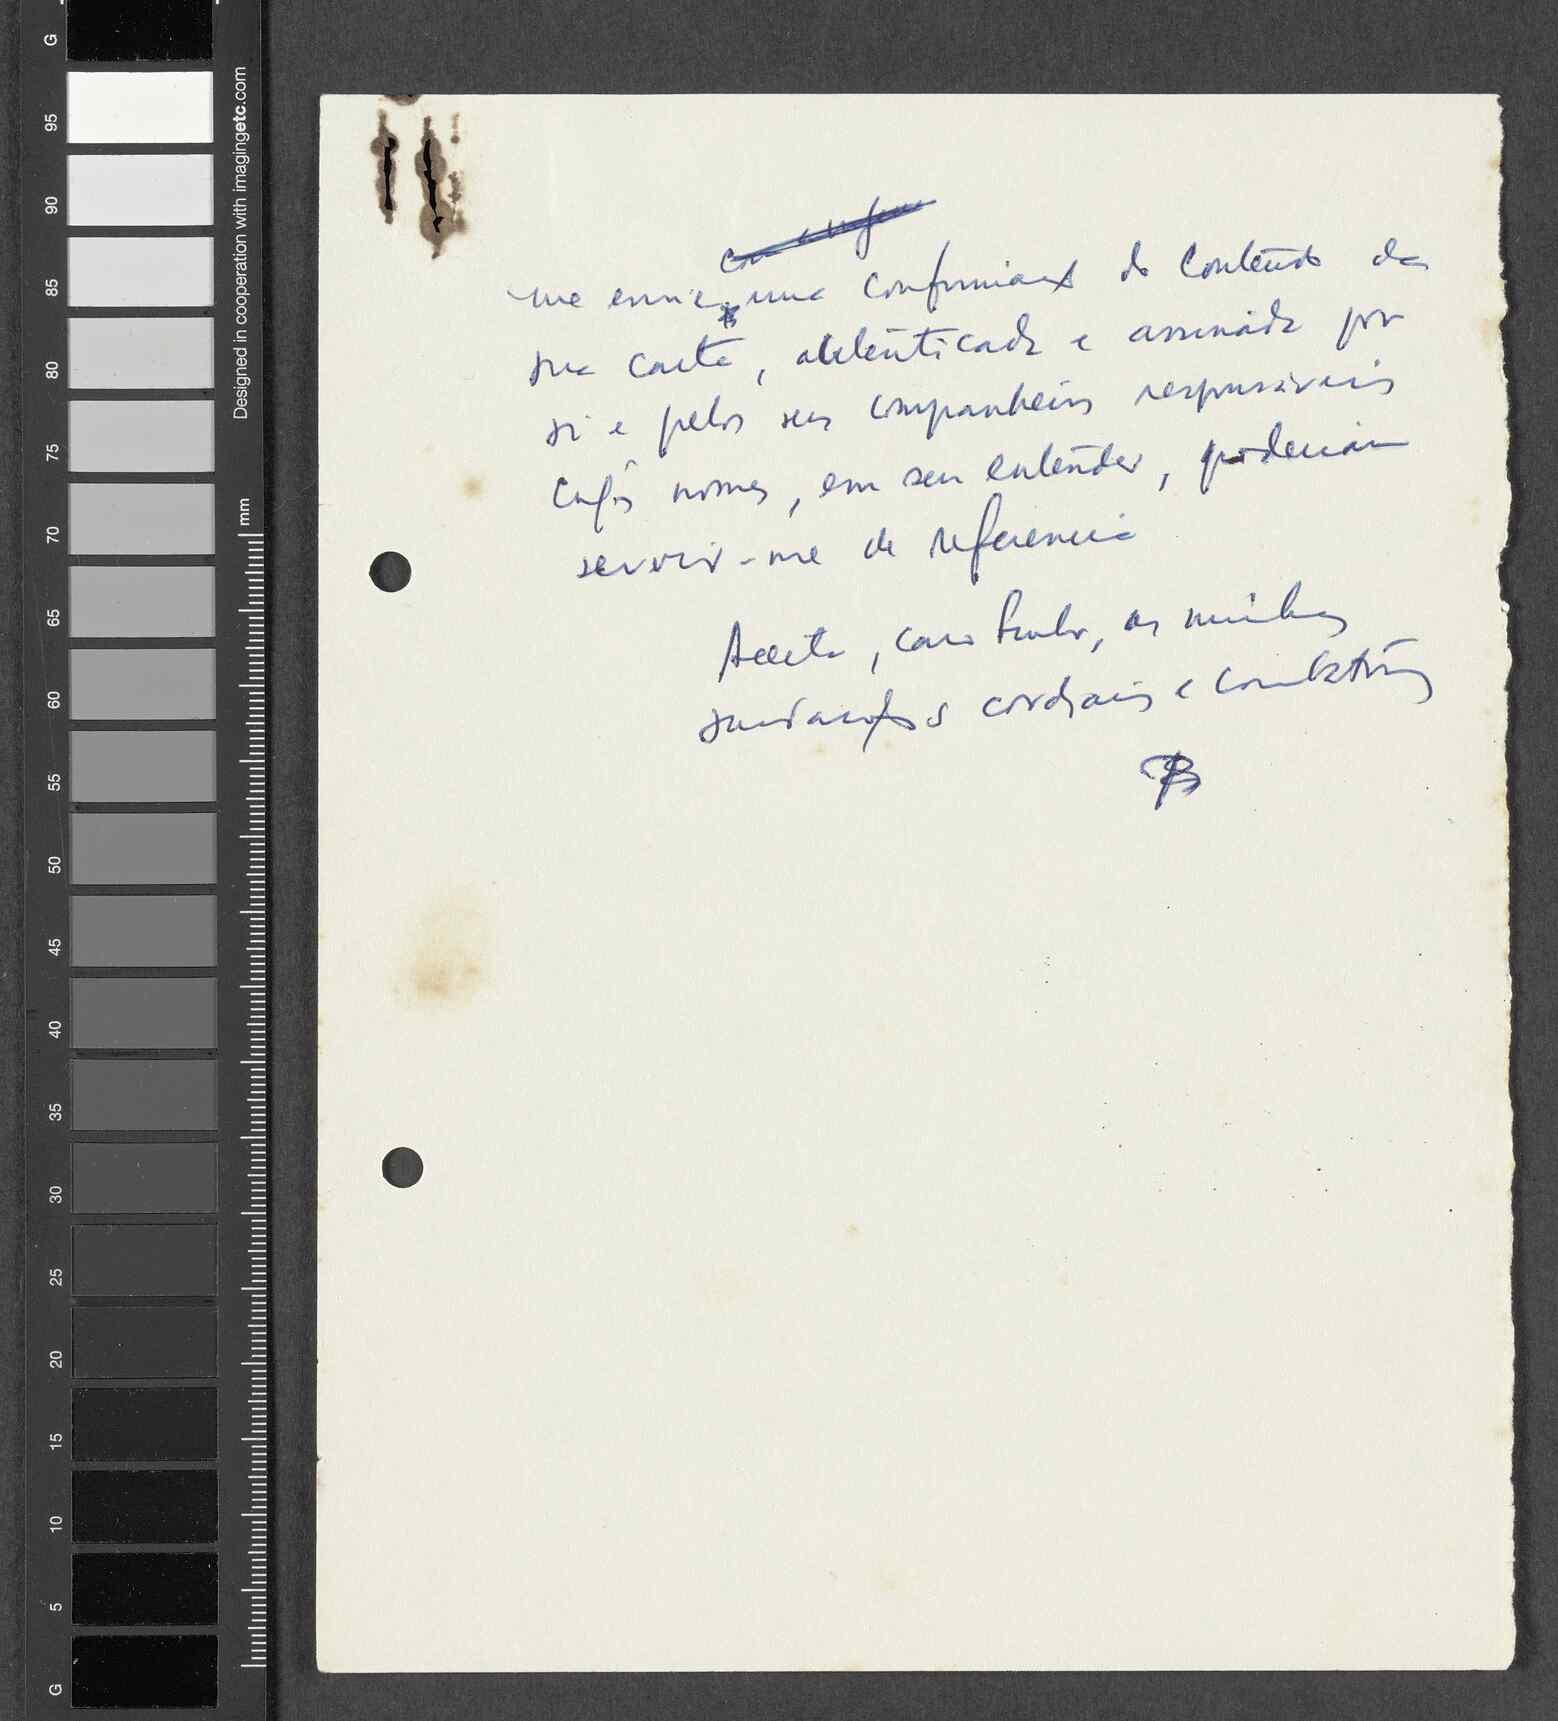 me envie uma confirmação do conteúdo da
sua carta, autenticada e assinada por
si e pelos seus companheiros responsáveis
cujos nomes, em seu entender, poderiam
servir-me de referencia
Aceite, caro, as minhas
saudações cordiais e combativas
G
95
90
85
80
75
70
65
60
55
50
45
40
35
30
25
20
15
10
5
G
Designed in cooperation with imagingetc.com
mm